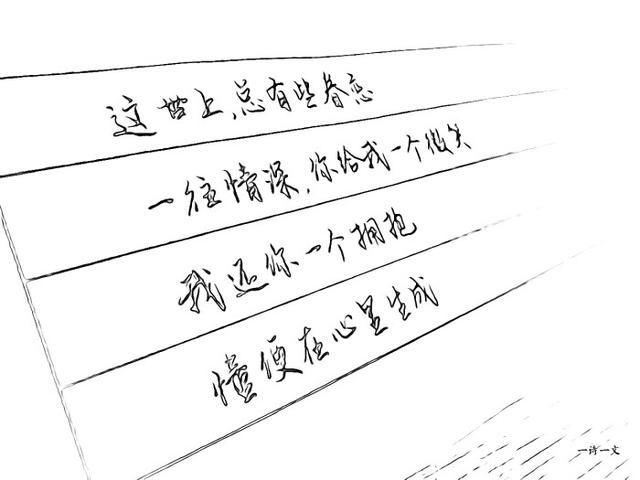 这世上,总有些眷恋
一往情深,你给我一个微笑
我还你一个拥抱
懂便在心里生成
一诗一文